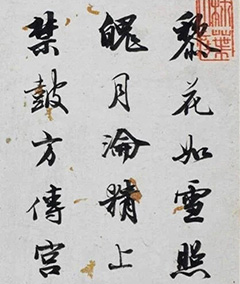 黎花如雪照
魄月淪精上
禁鼓方傳宮